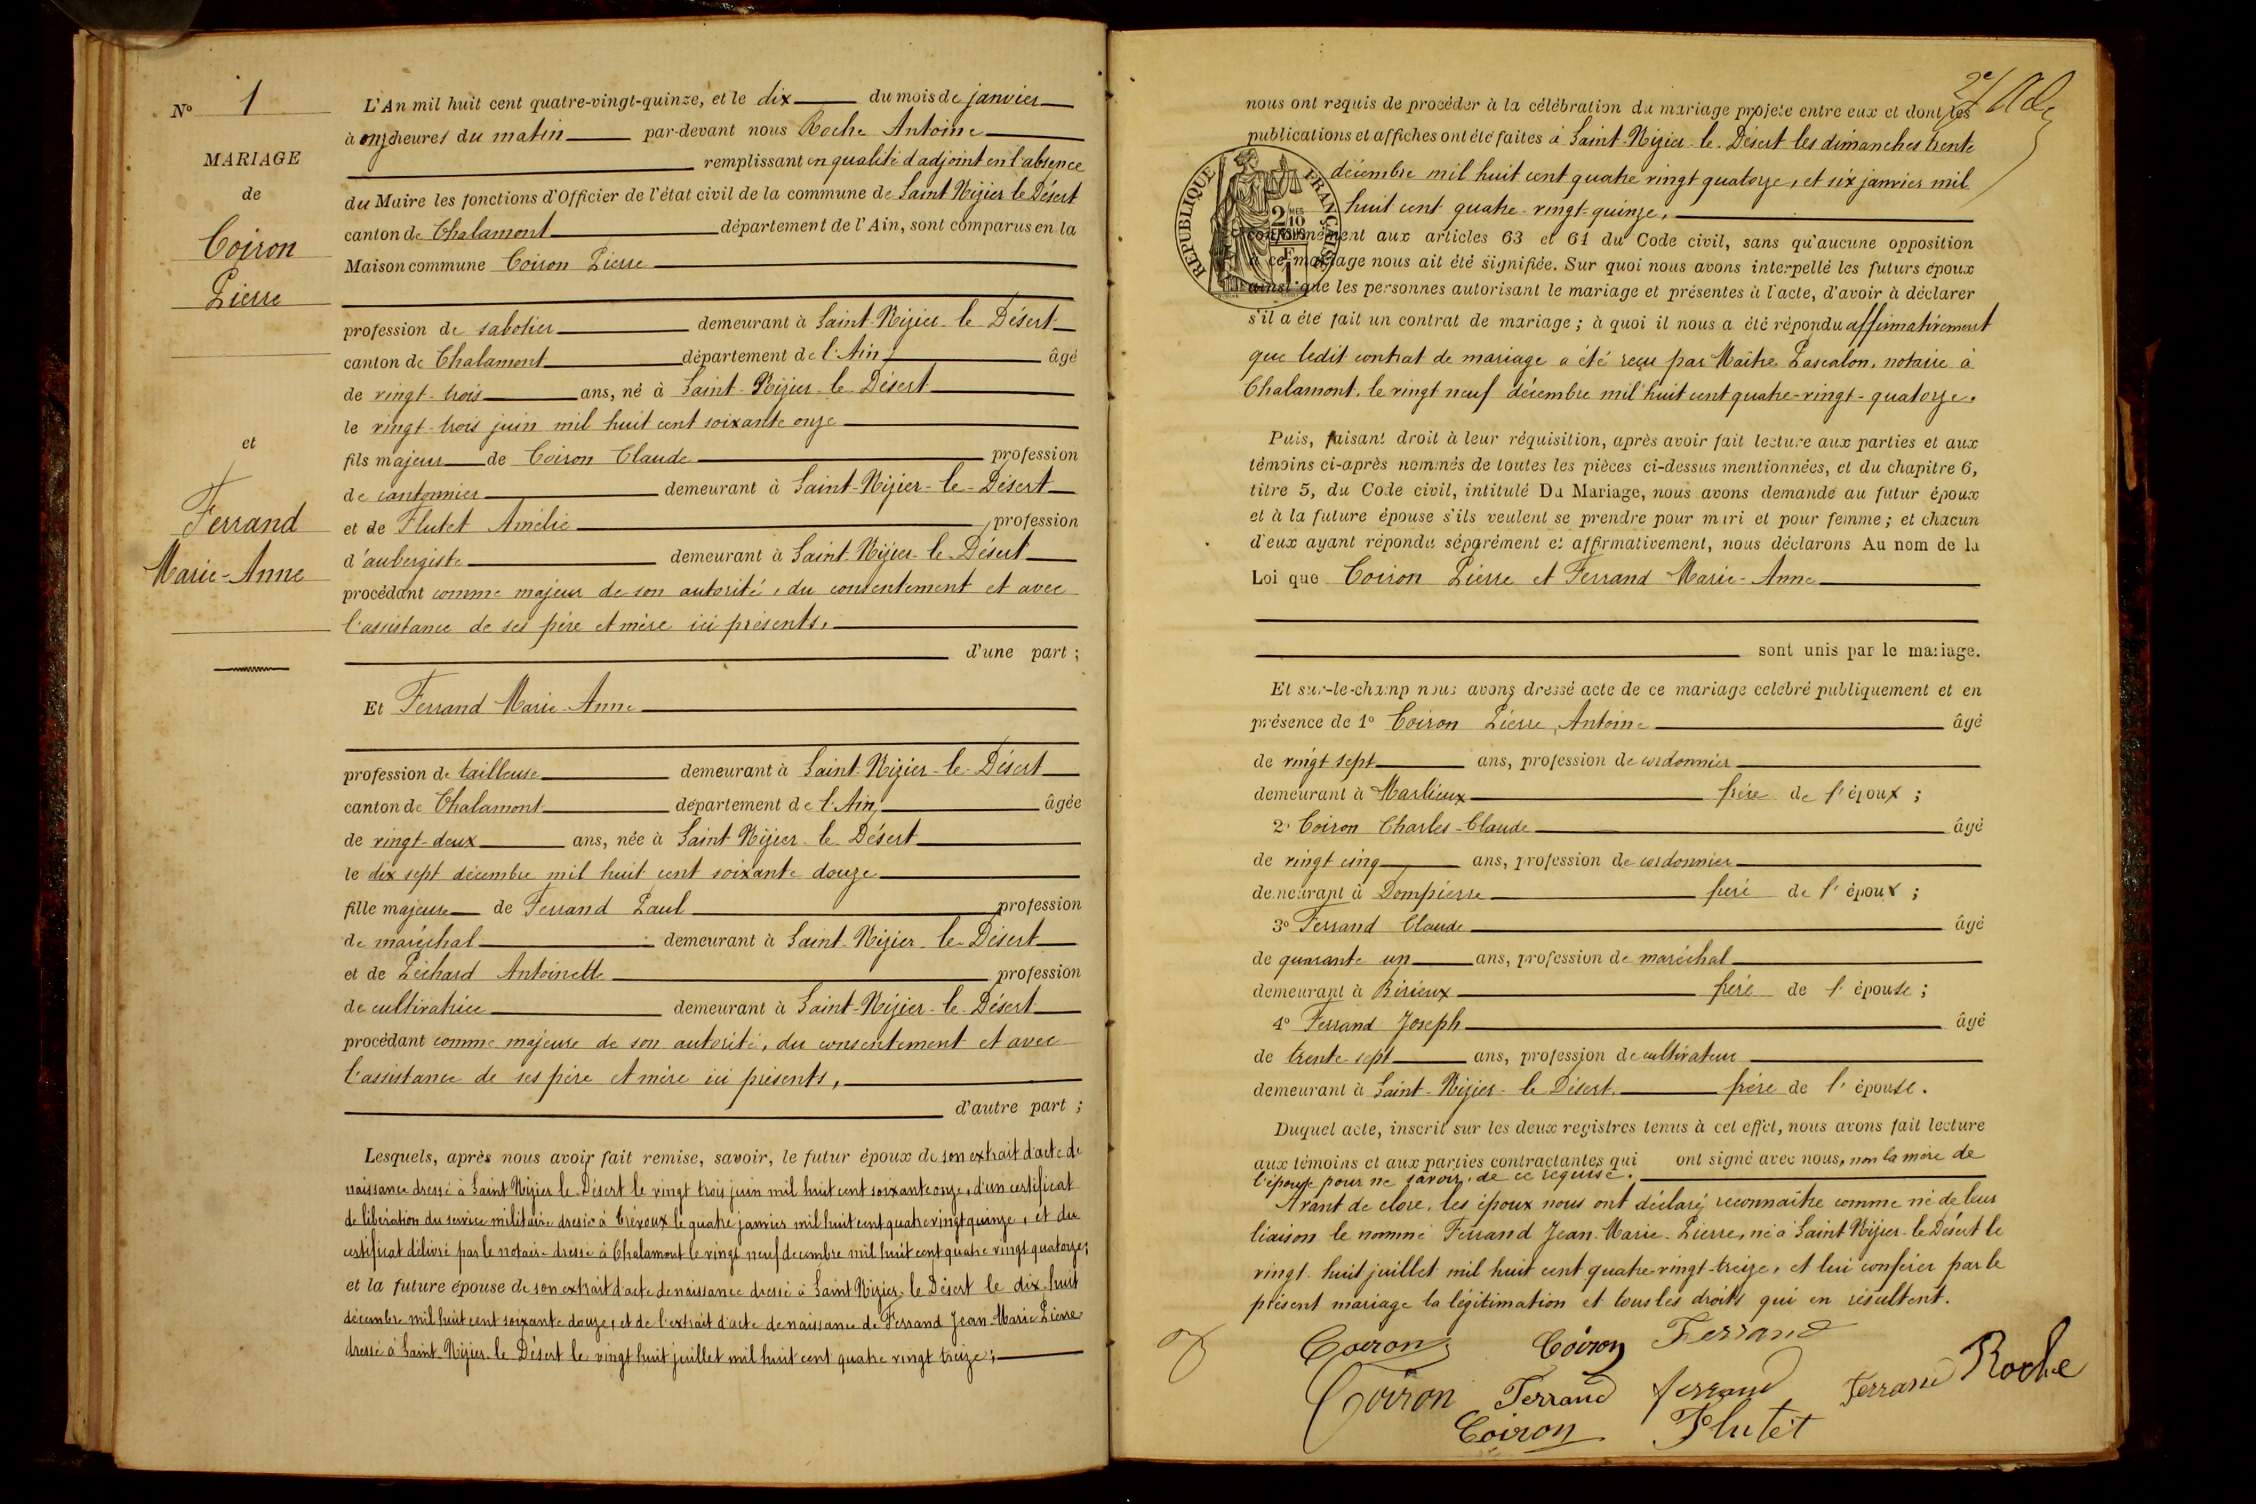 N° 1
MARIAGE
de
Coiron
Pierre
et
Ferrand
Marie-Anne
L'An mil huit cent quatre-vingt-quinze, et le dix du mois de janvier
à onze heures du matin par-devant nous Roche Antoine
remplissant en qualité d'adjoint en l'absence
du Maire les fonctions d'Officier de l'état civil de la commune de Saint Nizier le Désert
canton de Chalamont département de l'Ain, sont comparus en la
Maison commune Coiron Pierre
profession de sabotier demeurant à Saint-Nizier-le-Désert
canton de Chalamont département de l'Ain âgé
de vingt-trois ans, né à Saint-Nizier-le-Désert
le vingt-trois juin mil huit cent soixante onze
fils majeur de Coiron Claude profession
de cantonnier demeurant à Saint-Nizier-le-Désert
et de Flutet Amélie profession
d'aubergiste demeurant à Saint-Nizier-le-Désert
procédant comme majeur de son autorité, du consentement et avec
l'assistance de ses père et mère ici présents,
d'une part ;
Et Ferrand Marie-Anne
profession de tailleuse demeurant à Saint-Nizier-le-Désert
canton de Chalamont département de l'Ain âgée
de vingt-deux ans, née à Saint Nizier-le-Désert
le dix sept décembre mil huit cent soixante douze
fille majeure de Ferrand Paul profession
de maréchal demeurant à Saint-Nizier-le-Désert
et de Péchard Antoinette profession
de cultivatrice demeurant à Saint-Nizier-le-Désert
procédant comme majeure de son autorité, du consentement et avec
l'assistance de ses père et mère ici présents,
d'autre part ;
Lesquels, après nous avoir fait remise, savoir, le futur époux de son extrait d'acte de
naissance dressé à Saint Nizier le Désert le vingt trois juin mil huit cent soixante onze, d'un certificat
de libération du service militaire dressé à Trévoux le quatre janvier mil huit cent quatre vingt quinze, et du
certificat délivré par le notaire dressé à Chalamont le vingt neuf décembre mil huit cent quatre vingt quatorze;
et la future épouse de son extrait d'acte de naissance dressé à Saint Nizier-le Désert le dix-huit
décembre mil huit cent soixante douze, et de l'extrait d'acte de naissance de Ferrand Jean-Marie Pierre
dressé à Saint-Nizier-le Désert le vingt huit juillet mil huit cent quatre vingt treize;
nous ont requis de procéder à la célébration du mariage projeté entre eux et dont les
publications et affiches ont été faites à Saint-Nizier-le-Désert les dimanches trente
décembre mil huit cent quatre vingt quatorze, et six janvier mil
huit cent quatre-vingt-quinze,
RÉPUBLIQUE FRANÇAISE
conformément aux articles 63 et 64 du Code civil, sans qu'aucune opposition
à ce mariage nous ait été signifiée. Sur quoi nous avons interpellé les futurs époux
ainsi que les personnes autorisant le mariage et présentes à l'acte, d'avoir à déclarer
s'il a été fait un contrat de mariage ; à quoi il nous a été répondu affirmativement
que ledit contrat de mariage a été reçu par Maître Pascalon, notaire à
Chalamont, le vingt neuf décembre mil huit cent quatre-vingt-quatorze.
Puis, faisant droit à leur réquisition, après avoir fait lecture aux parties et aux
témoins ci-après nommés de toutes les pièces ci-dessus mentionnées, et du chapitre 6,
titre 5, du Code civil, intitulé Du Mariage, nous avons demandé au futur époux
et à la future épouse s'ils veulent se prendre pour mari et pour femme ; et chacun
d'eux ayant répondu séparément et affirmativement, nous déclarons Au nom de la
Loi que Coiron Pierre et Ferrand Marie-Anne
sont unis par le mariage.
Et sur-le-champ nous avons dressé acte de ce mariage célébré publiquement et en
présence de 1° Coiron Pierre, Antoine âgé
de vingt sept ans, profession de cordonnier
demeurant à Marlieux frère de l'époux ;
2° Coiron Charles-Claude âgé
de vingt cinq ans, profession de cordonnier
demeurant à Dompierre frère de l'époux ;
3° Ferrand Claude âgé
de quarante un ans, profession de maréchal
demeurant à Birieux frère de l'épouse ;
4° Ferrand Joseph âgé
de trente sept ans, profession de cultivateur
demeurant à Saint-Nizier-le Désert frère de l'épouse.
Duquel acte, inscrit sur les deux registres tenus à cet effet, nous avons fait lecture
aux témoins et aux parties contractantes qui ont signé avec nous, non la mère de
l'épouse pour ne savoir, de ce requise.
Avant de clore, les époux nous ont déclaré reconnaître comme né de leur
liaison le nommé Ferrand Jean-Marie-Pierre, né à Saint Nizier-le Désert le
vingt-huit juillet mil huit cent quatre-vingt-treize, et lui conférer par le
présent mariage la légitimation et tous les droits qui en résultent.
Coiron Coiron Ferrand
Coiron Ferrand ferrand ferrand Roche
Coiron Flutet